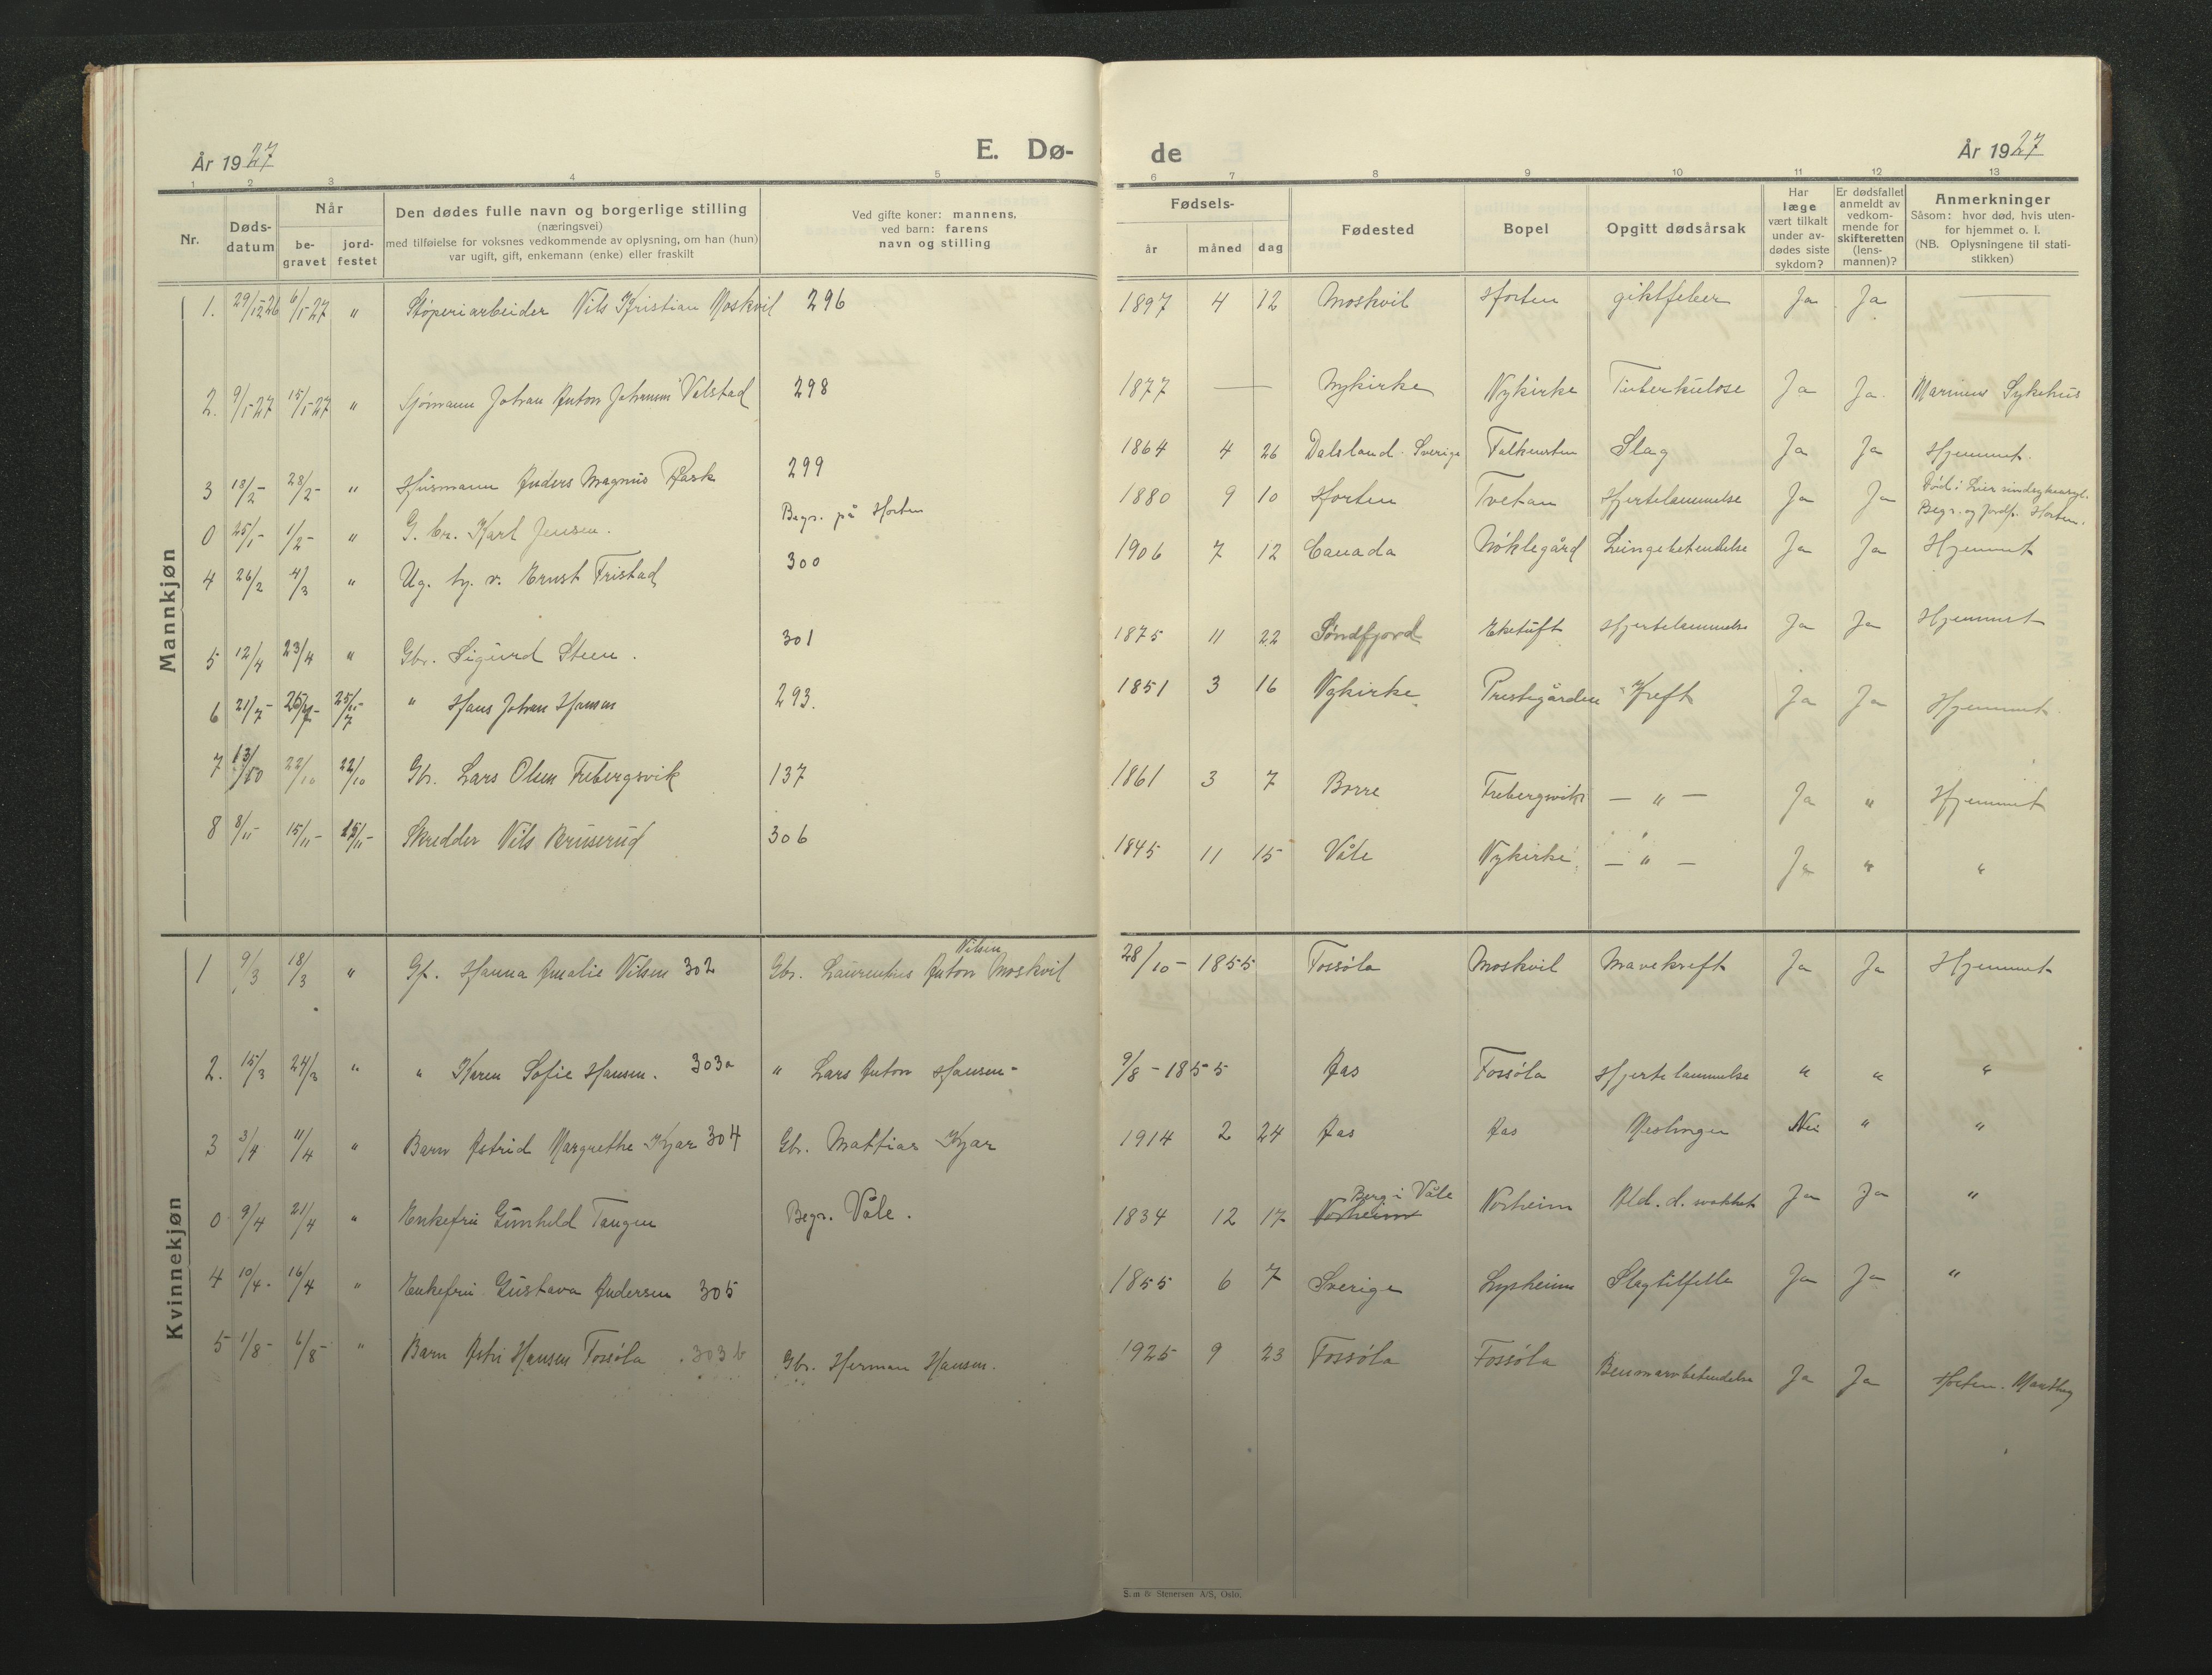 År 1927
E. Dø-
de
År 1927
1 2 3 4 5 6 7 8 9 10 11 12 13
Nr.
Døds-
datum
Når
be-
gravet
jord-
festet
Den dødes fulle navn og borgerlige stilling
(næringsvei)
med tilføielse for voksnes vedkommende av oplysning, om han (hun)
var ugift, gift, enkemann (enke) eller fraskilt
Ved gifte koner: mannens,
ved barn: farens
navn og stilling
Fødsels-
år måned dag
Fødested
Bopel
Opgitt dødsårsak
Har
læge
vært tilkalt
under av-
dødes siste
sykdom?
Er dødsfallet
anmeldt av
vedkom-
mende for
skifteretten
(lens-
mannen)?
Anmerkninger
Såsom: hvor død, hvis uten-
for hjemmet o. l.
(NB. Oplysningene til stati-
stikken)
Mannkjøn
1. 29/12 26 6/1-27 " Støperiarbeider Nils Kristian Moskvil 296 1897 4 12 Moskvil Horten giktfeber Ja Ja —
2. 9/1-27 15/1-27 " Sjømann Johan Anton Valstad 298 1877 — Nykirke Nykirke Tuberkulose Ja Ja. Marinens Sykehus
3 18/2- 28/2- " Husmann Anders Magnus Rask 299 1864 4 26 Dalsland. Sverige Falkensten Slag Ja Ja Hjemmet.
0 25/1- 1/2- " G. br. Karl Jensen. Begr. på Horten 1880 9 10 Horten Tvetan Hjertelammelse Ja Ja Død i Lier sindsykeasyl.
Begr. og jordf. Horten.
4 26/2 4/3 " Ug. v. Ernst Fristad 300 1906 7 12 Canada Nøklegård Lungebetendelse Ja Ja Hjemmet
5 12/4 23/4 " Gbr. Sigurd Steen. 301 1875 11 22 Søndfjord Ektuft Hjertelammelse Ja Ja Hjemmet
6 21/7- 25/7- 25/7- " Hans Johan Hansen 293. 1851 3 16 Nykirke Prestegården Kreft Ja Ja Hjemmet
7 13/10 22/10 22/10 Gbr. Lars Olsen Frebergsvik 137 1861 3 7 Borre Frebergsvik — " — Ja " Hjemmet
8 8/11- 15/11- 15/11- Skredder Nils Bruserud 306 1845 11 15 Våle Nykirke — " — Ja " "
Kvinnekjøn
1 9/3 18/3 " Gf. Hanna Amalie Nilsen 302 Gbr. Laurentius Anton Nilsen Moskvil 28/10-1855 Fossøla Moskvil Mavekreft Ja Ja Hjemmet
2. 15/3 24/3 " " Karen Sofie Hansen. 303a " Lars Anton Hansen- 9/8-1855 Aas Fossøla Hjertelammelse " " "
3 3/4 11/4 " Barn Astrid Margrethe Kjær 304 Gbr. Mattias Kjær 1914 2 24 Aas Aas Meslinger Nei " "
0 9/4 21/4 " Enkefru Gunhild Tangen Begr. Våle. 1834 12 17 Norheim Berg i Våle Norheim Ald. d. svakhet Ja Ja "
4 10/4- 16/4 " Enkefru Gustava Andersen 305 1855 6 7 Sverige Lysheim Slagtilfelle Ja Ja "
5 1/8- 6/8- " Barn Hansen Fossøla 303b Gbr. Herman Hansen. 1925 9 23 Fossøla Fossøla Benmarvbetendelse Ja Ja Horten.
& Stenersen A/S, Oslo.